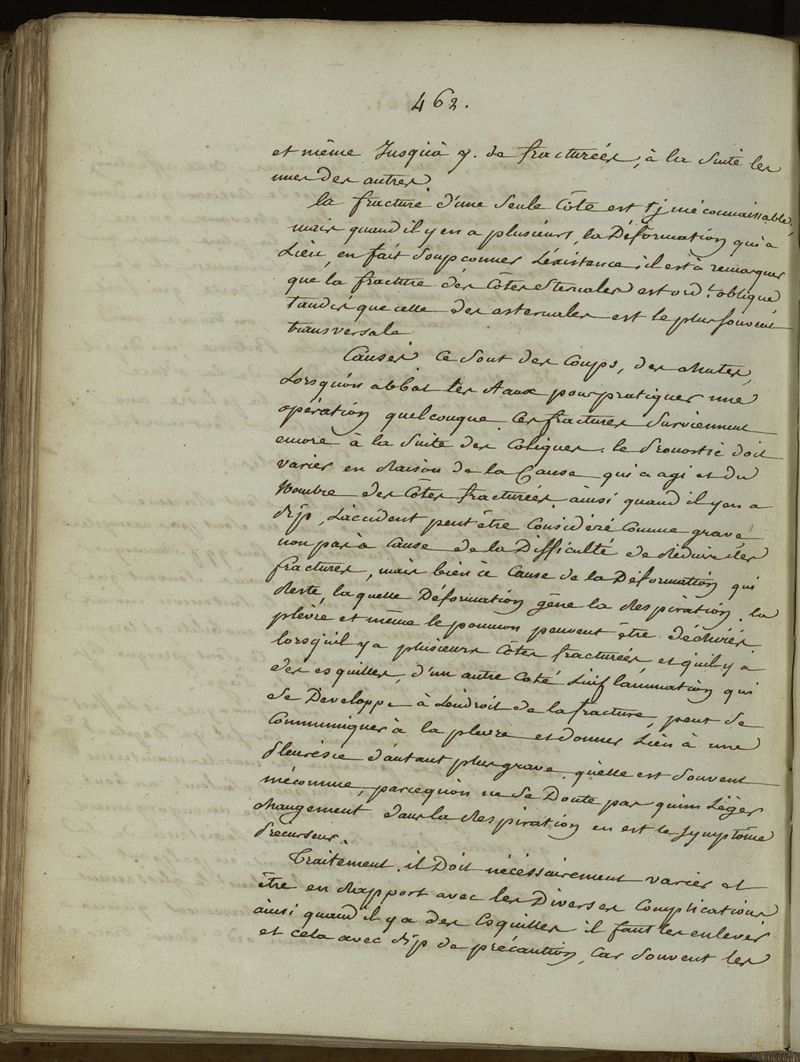 462.
et même Jusqu'à 7. de fracturées, à la suite les
unes des autres
la fracture d'une Seule Côte est tj méconnaissable,
mais quand il y en a plusieurs, la Déformation qui a
Lieu, en fait soupconner L'éxistance; il est à remarquer
que la fracture des Côtes sternales est ord.t oblique
tandis que celle des asternales est le plus souvent
transversale
Causes Ce sont des Coups, des chutes,
Lorsqu'on abbat les Aaux pour pratiquer une
opération quelconque Ces fractures surviennent
encore à la suite des Coliques. le Pronostic doit
varier en Raison de la Cause qui a agi et du
Nombre des Côtes fracturées ainsi quand il y en a
Bp, L'accident peut être Considéré Comme grave
non pas à Cause de la Difficulté de Réduire les
fractures, mais bien à Cause de la Déformation qui
Reste, la quelle Déformation gêne la Respiration. la
plèvre et même le poumon peuvent être déchirés
lorsqu'il y a plusieurs Côtes fracturées et qu'il y a
des esquilles, d'un autre Coté L'inflammation qui
se Développe à L'endroit de la fracture, peut se
Communiquer à la plevre et donner Lieu à une
Pleurésie d'autant plus grave, qu'elle est souvent
méconnue, parcequ'on ne se Doute pas qu'un Léger
changement dans la Respiration en est le symptôme
Précurseur.
Traitement. il Doit nécéssairement varier et
être en Rapport avec les Diverses Complications
ainsi quand il y a des Esquilles il faut les enlever
et cela avec Bp de précaution, Car souvent les